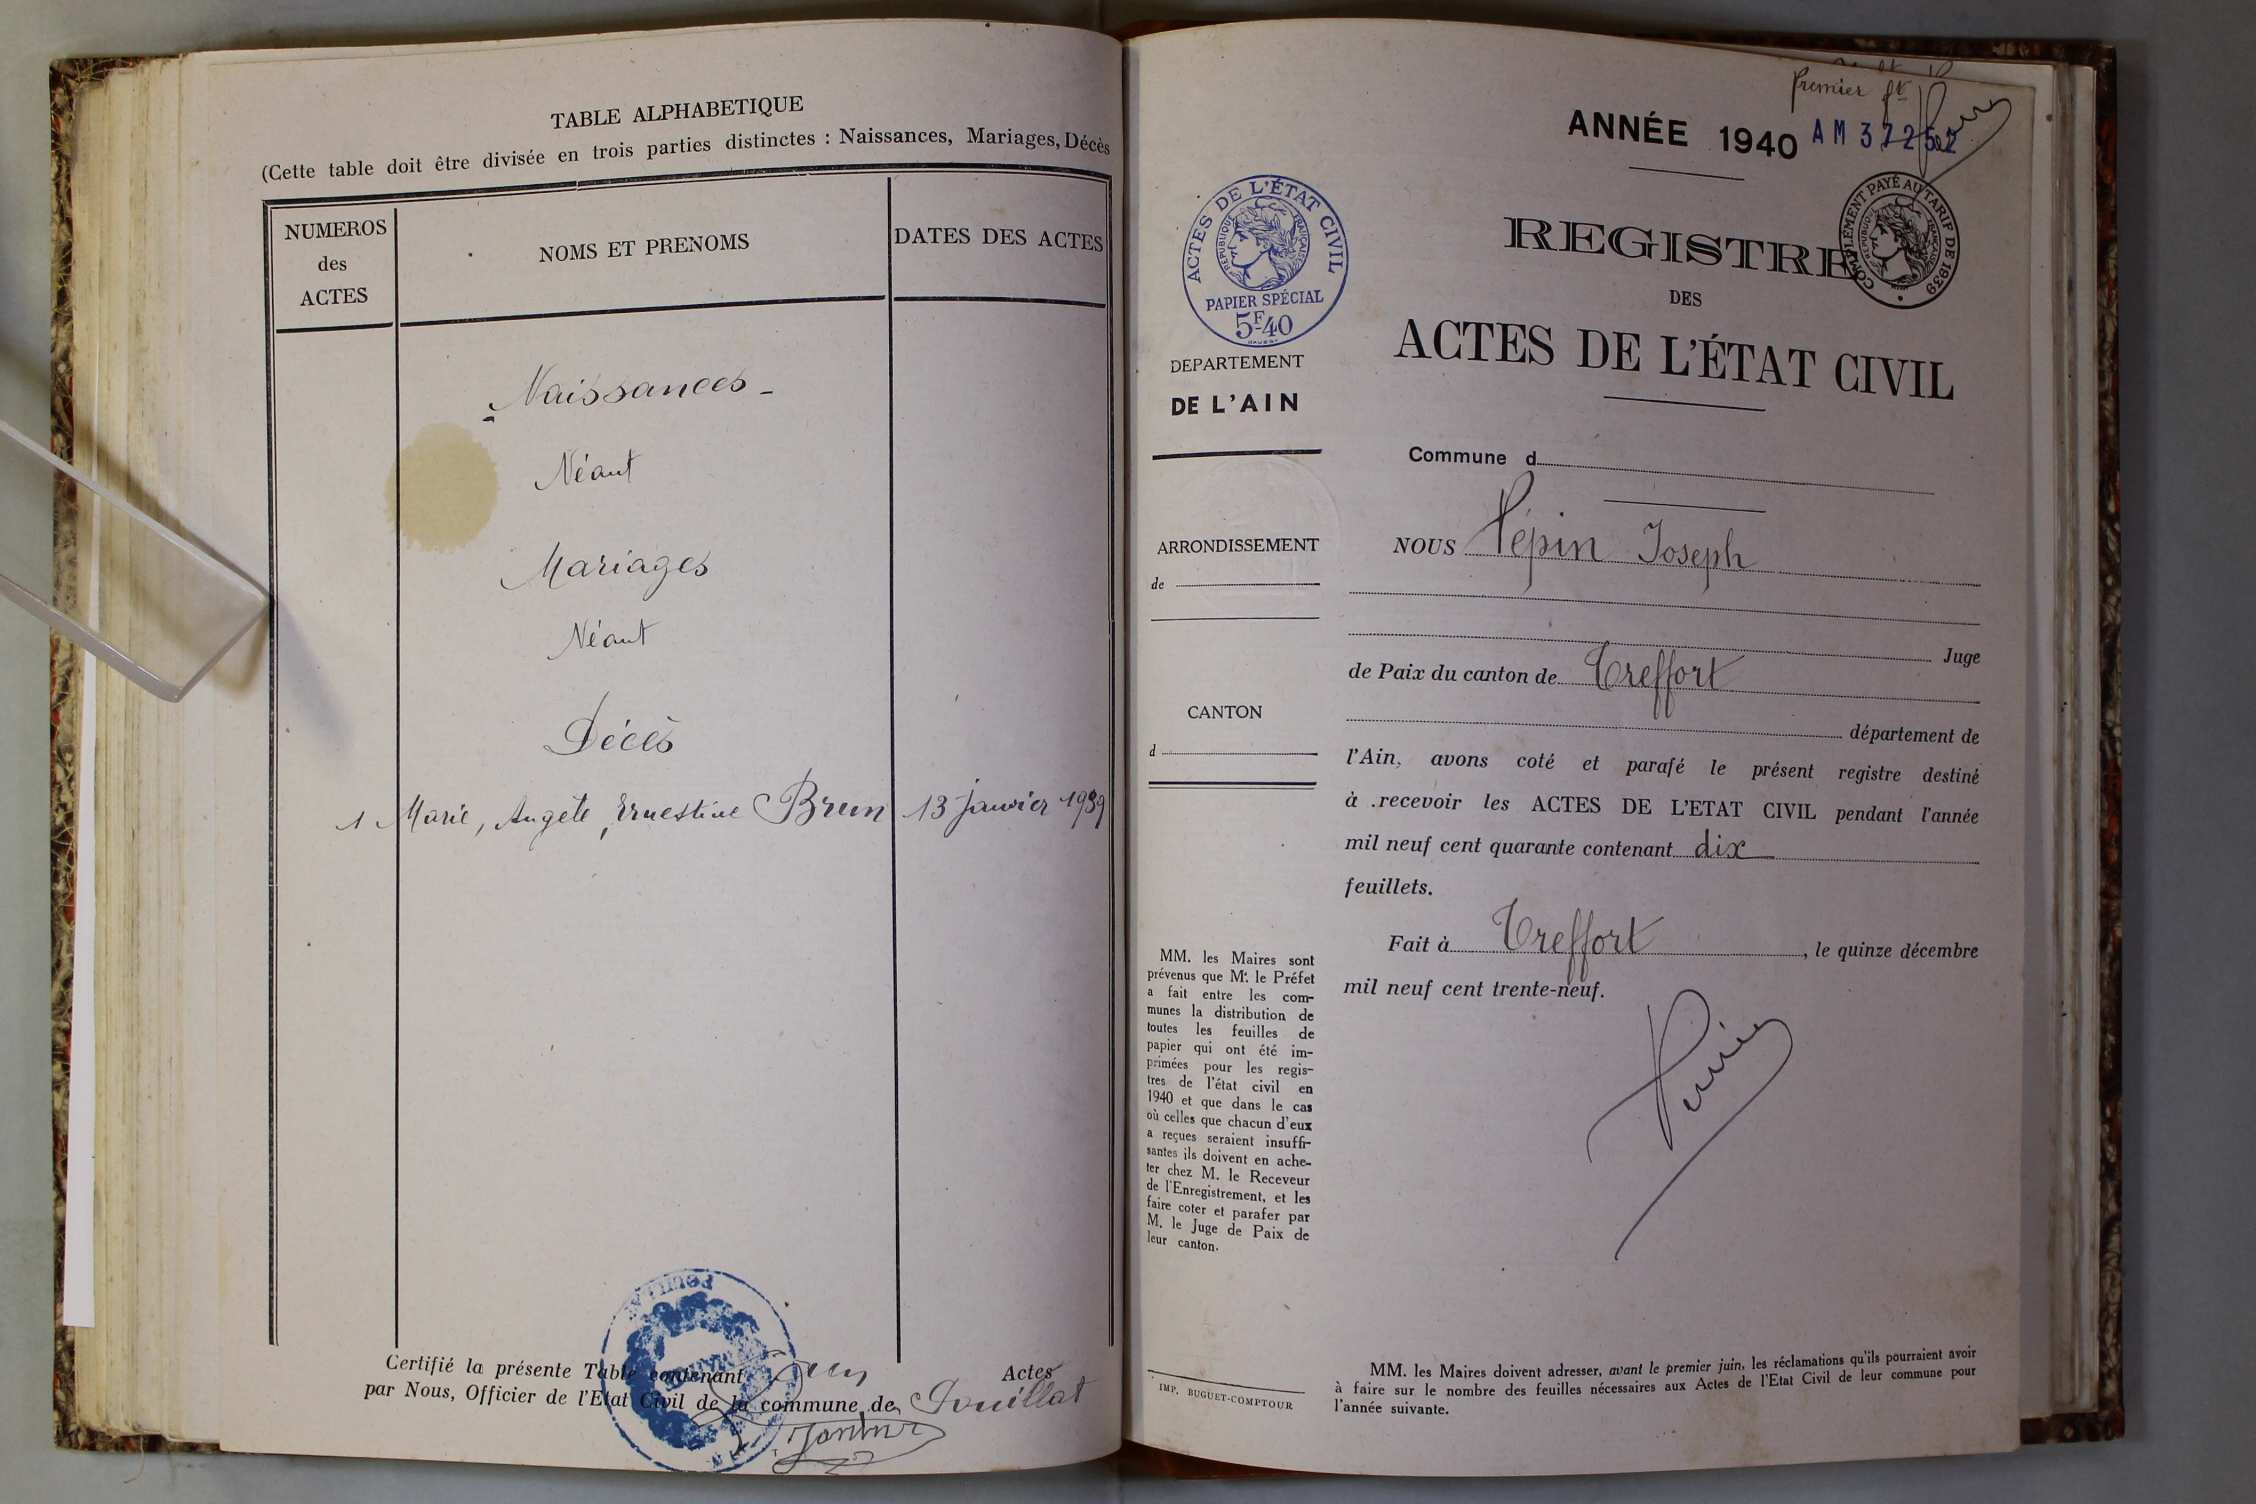 TABLE ALPHABETIQUE
(Cette table doit être divisée en trois parties distinctes : Naissances, Mariages, Décès
NUMEROS
des
ACTES
NOMS ET PRENOMS
DATES DES ACTES
Naissances
Néant
Mariages
Néant
Décès
1 Marie, Angèle, Ernestine Brun 13 janvier 1939
Certifié la présente Table contenant Actes
par Nous, Officier de l'Etat Civil de la commune de Pouillat
POUILLAT
Premier ft
ANNÉE 1940
AM 37252
ACTES DE L'ÉTAT CIVIL
RÉPUBLIQUE FRANÇAISE
PAPIER SPÉCIAL
5F40
COMPLÉMENT PAYÉ AU TARIF DE 1939
RÉPUBLIQUE FRANÇAISE
REGISTRE
DES
ACTES DE L'ÉTAT CIVIL
DEPARTEMENT
DE L'AIN
ARRONDISSEMENT
de
CANTON
d
MM. les Maires sont
prévenus que Mr. le Préfet
a fait entre les com-
munes la distribution de
toutes les feuilles de
papier qui ont été im-
primées pour les regis-
tres de l'état civil en
1940 et que dans le cas
où celles que chacun d'eux
a reçues seraient insuffi-
santes ils doivent en ache-
ter chez M. le Receveur
de l'Enregistrement, et les
faire coter et parafer par
M. le Juge de Paix de
leur canton.
IMP. BUGUET-COMPTOUR
Commune d
NOUS Pépin Joseph
Juge
de Paix du canton de Treffort
département de
l'Ain, avons coté et parafé le présent registre destiné
à recevoir les ACTES DE L'ETAT CIVIL pendant l'année
mil neuf cent quarante contenant dix
feuillets.
Fait à Treffort, le quinze décembre
mil neuf cent trente-neuf.
MM. les Maires doivent adresser, avant le premier juin, les réclamations qu'ils pourraient avoir
à faire sur le nombre des feuilles nécessaires aux Actes de l'Etat Civil de leur commune pour
l'année suivante.